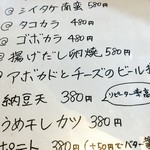 @ シイタケ南蛮 580円
@ タコカラ 480円
@ ゴボカラ 480円
@ 揚げだし卵焼 580円
@ アボカドとチーズのビール
納豆天 380円 リピーター
うめキレカツ 380円
ポニト 380円 (+50円でバター